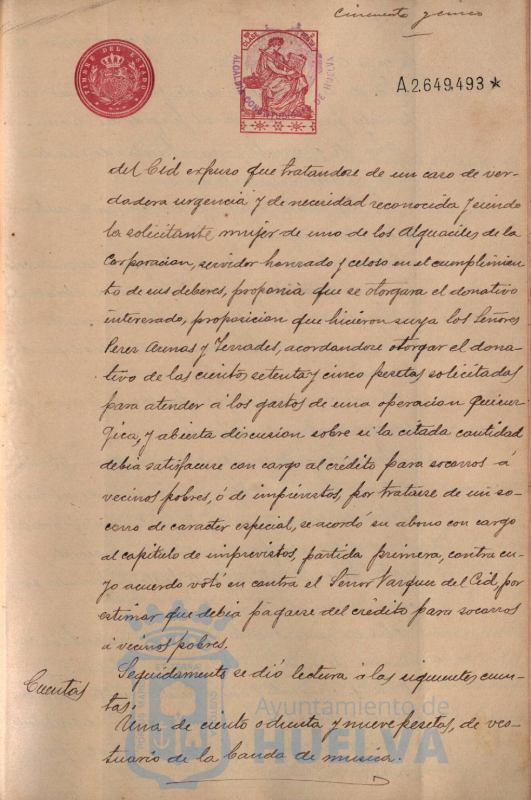 Cincuenta y cinco
TIMBRE DEL ESTADO
A.2.649.493 *
del Cid expuso que tratandose de un caso de ver-
dadera urgencia y de necesidad reconocida y siendo
la solicitante mujer de uno de los Alguaciles de la
Corporacion, servidor honrado y celoso en el cumplimien-
to de sus deberes, proponia que se otorgara el donativo
interesado, proposicion que hicieron suya los Señores
Perez Arenas y Terrades, acordandose otorgar el dona-
tivo de las ciento setenta y cinco pesetas solicitadas
para atender á los gastos de una operacion quirur-
gica, y abierta discusion sobre si la citada cantidad
debia satisfacerse con cargo al crédito para socorros á
vecinos pobres, ó de imprevistos, por tratarse de un so-
corro de caracter especial, se acordó su abono con cargo
al capitulo de imprevistos, partida primera, contra cu-
yo acuerdo votó en contra el Señor Vazquez del Cid, por
estimar que debia pagarse del crédito para socorros
á vecinos pobres.
Cuentas
Seguidamente se dió lectura á las siguientes cuen-
tas:
Una de ciento ochenta y nueve pesetas, de ves-
tuario de la banda de musica.
Ayuntamiento de
HUELVA